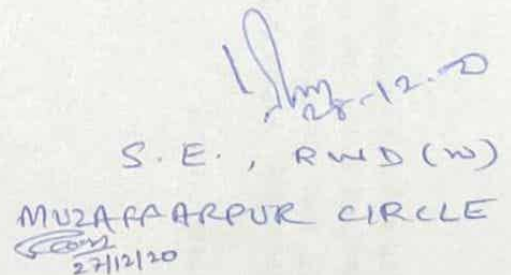 28-12-20
S.E., RWD (W)
MUZAFFARPUR CIRCLE
27/12/20